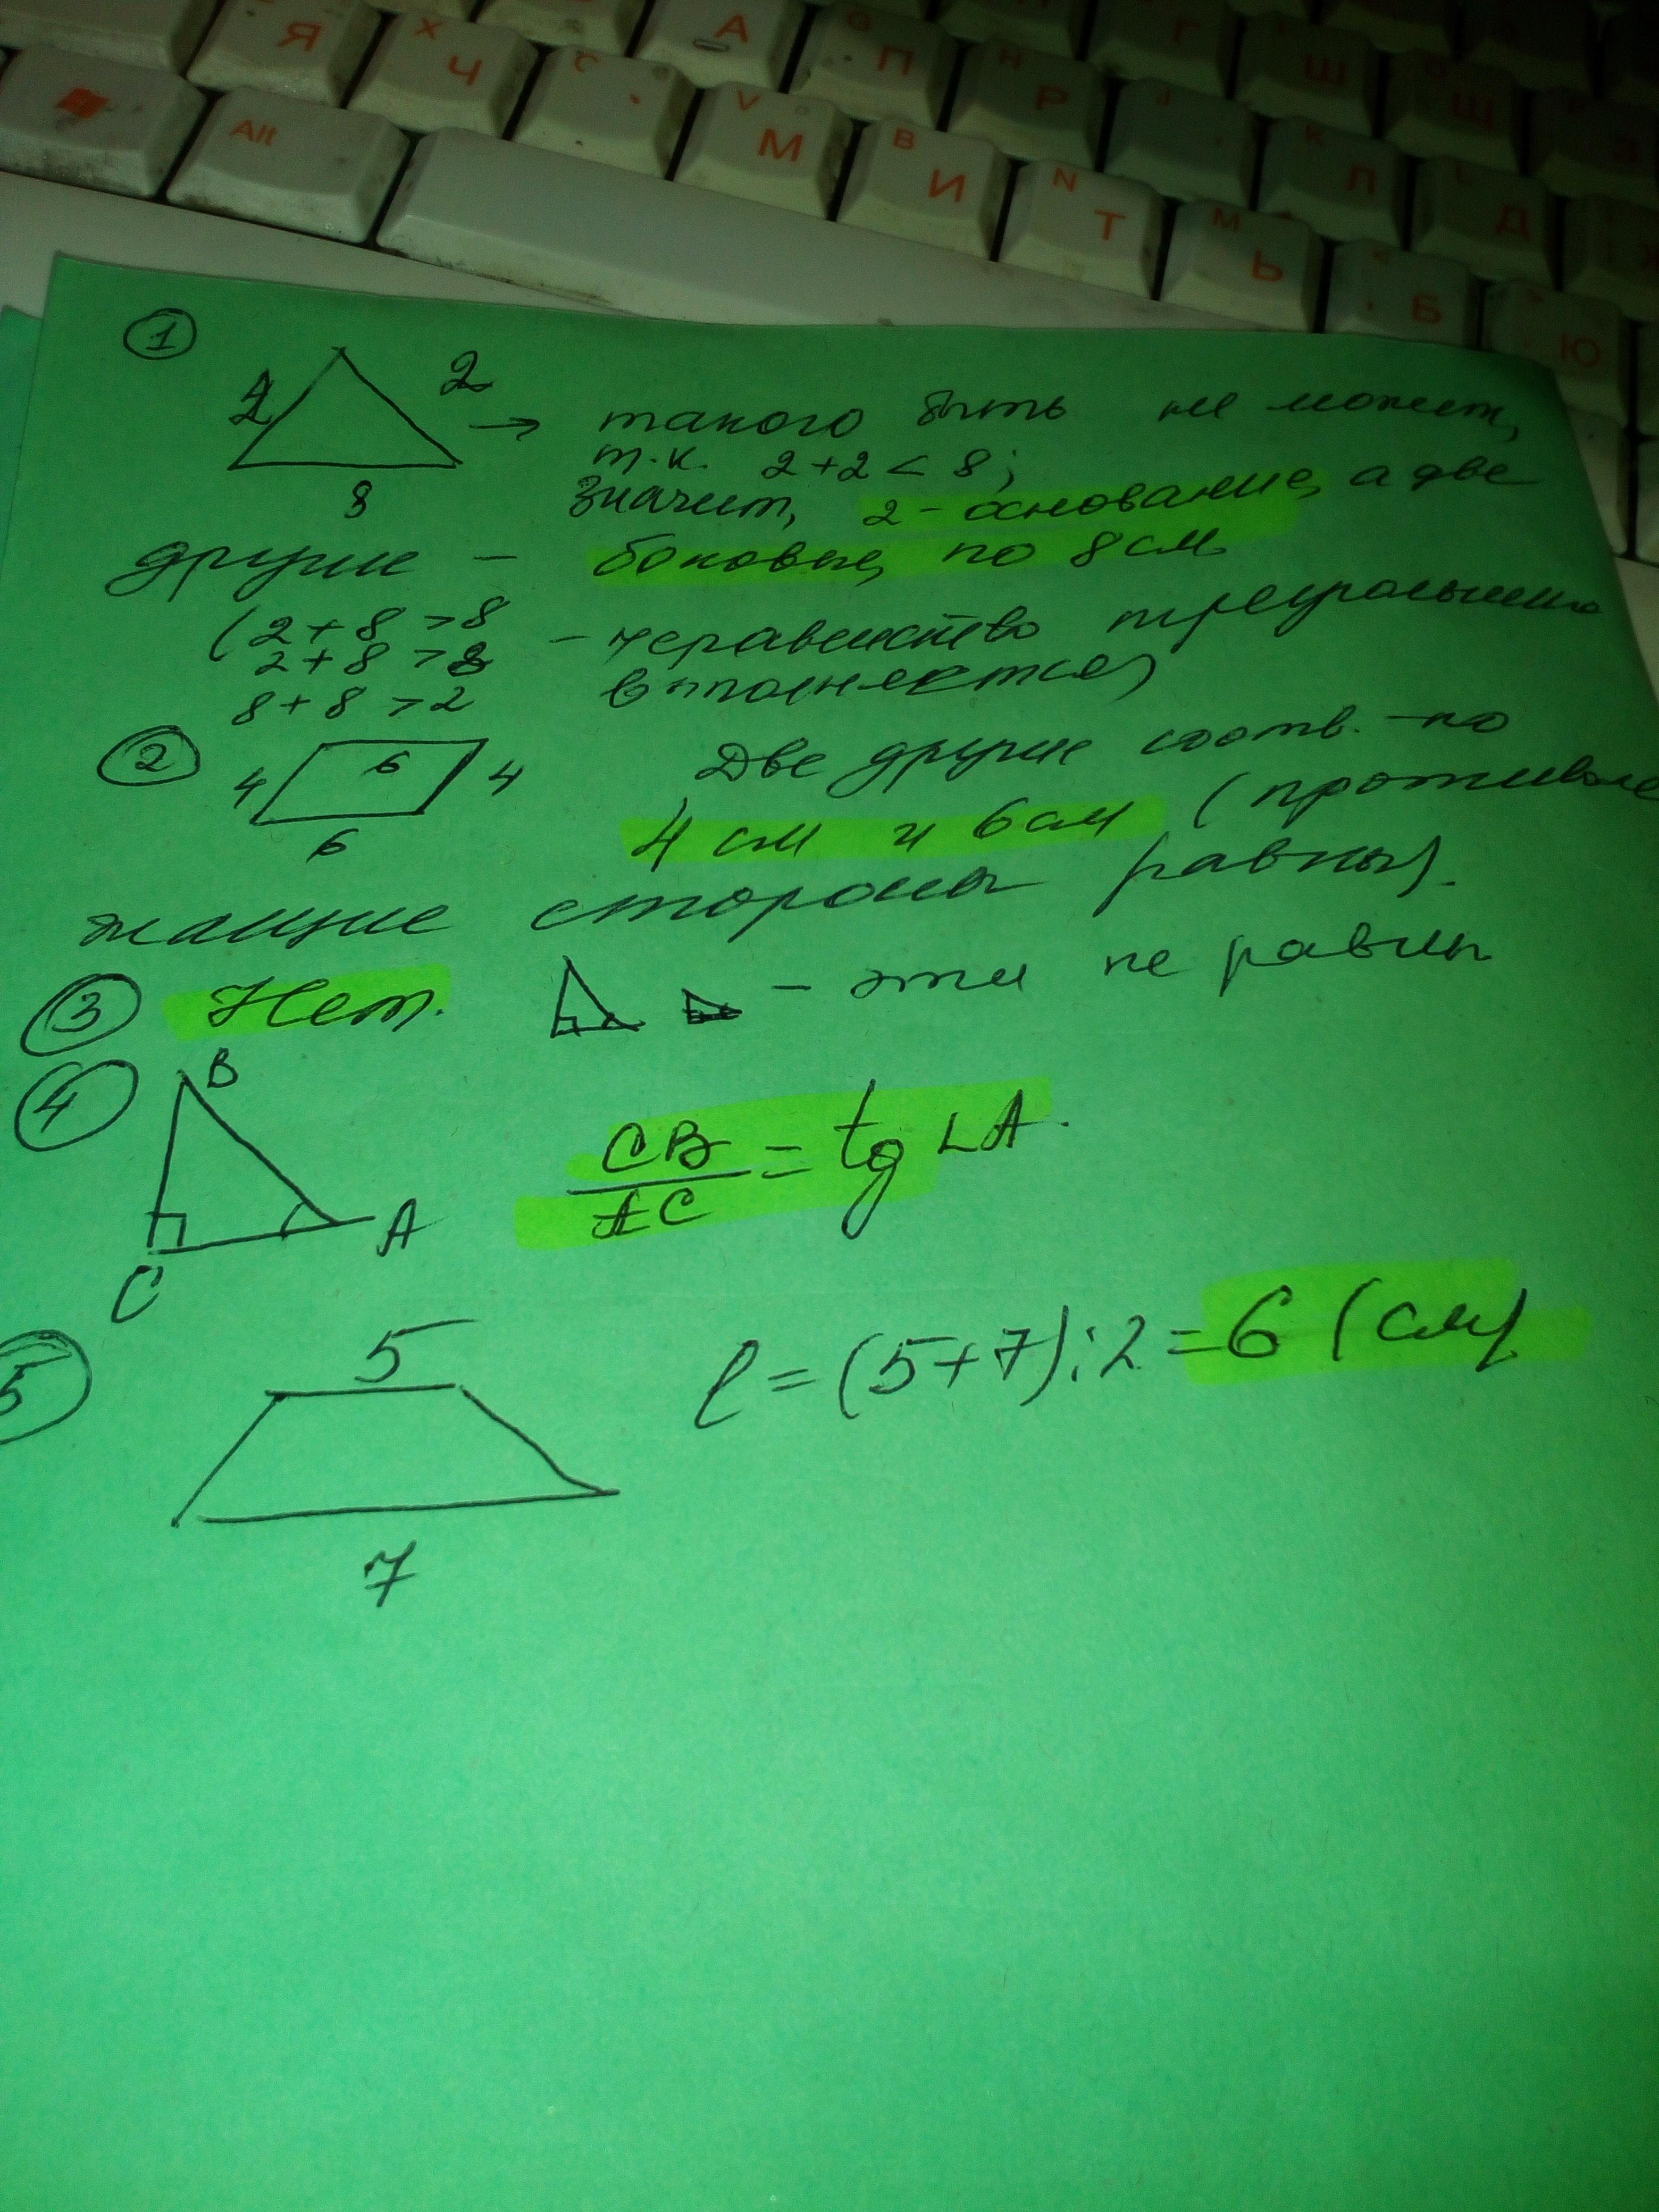 Я Ч С А П Р Г Ш Щ З
Alt М И Т Ь Л Б Д Ю
1
2 2 → такого быть не может,
8 т.к. 2+2 < 8;
значит, 2 - основание, а две
другие - боковые, по 8 см
(2+8 >8 - неравенство треугольника
2+8 >8 выполняется)
8+8 >2
2
4 6 4 Две другие соотв. - по
6 4 см и 6 см (противоле
жащие стороны равны).
3 Нет. - эти не равны
4
B
CB/AC = tg ∠A.
C A
5
5 l = (5+7):2 = 6 (см)
7